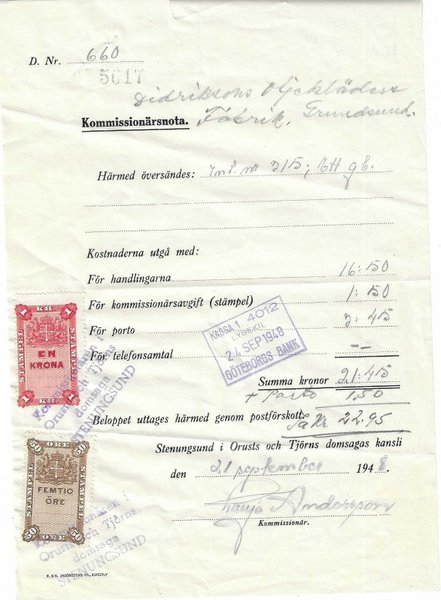 D. Nr. 660
5617
Didriksons Oljekläders
Kommissionärsnota. Fabrik, Grundsund.
Härmed översändes: nr 315;
Kostnaderna utgå med:
För handlingarna 16:50
För kommissionärsavgift (stämpel) 1:50
För porto 3:45
För telefonsamtal —
Summa kronor 21:45
+ Porto 1.50
Beloppet uttages härmed genom postförskott. Sa Kr 22.95
Stenungsund i Orusts och Tjörns domsagas kansli
den 21 september 1948.
Tanja Andersson
Kommissionär.
KASSA 1 4012
LYSEKIL
24 SEP 1948
GÖTEBORGS BANK
1 KR. 1
STÄMPEL STÄMPEL
EN
KRONA
1 1
Kommissionären i
Orusts och Tjörns
domsaga
STENUNGSUND
50 ÖRE 50
STÄMPEL STÄMPEL
FEMTIO
ÖRE
50 50
Kommissionären i
Orusts och Tjörns
domsaga
STENUNGSUND